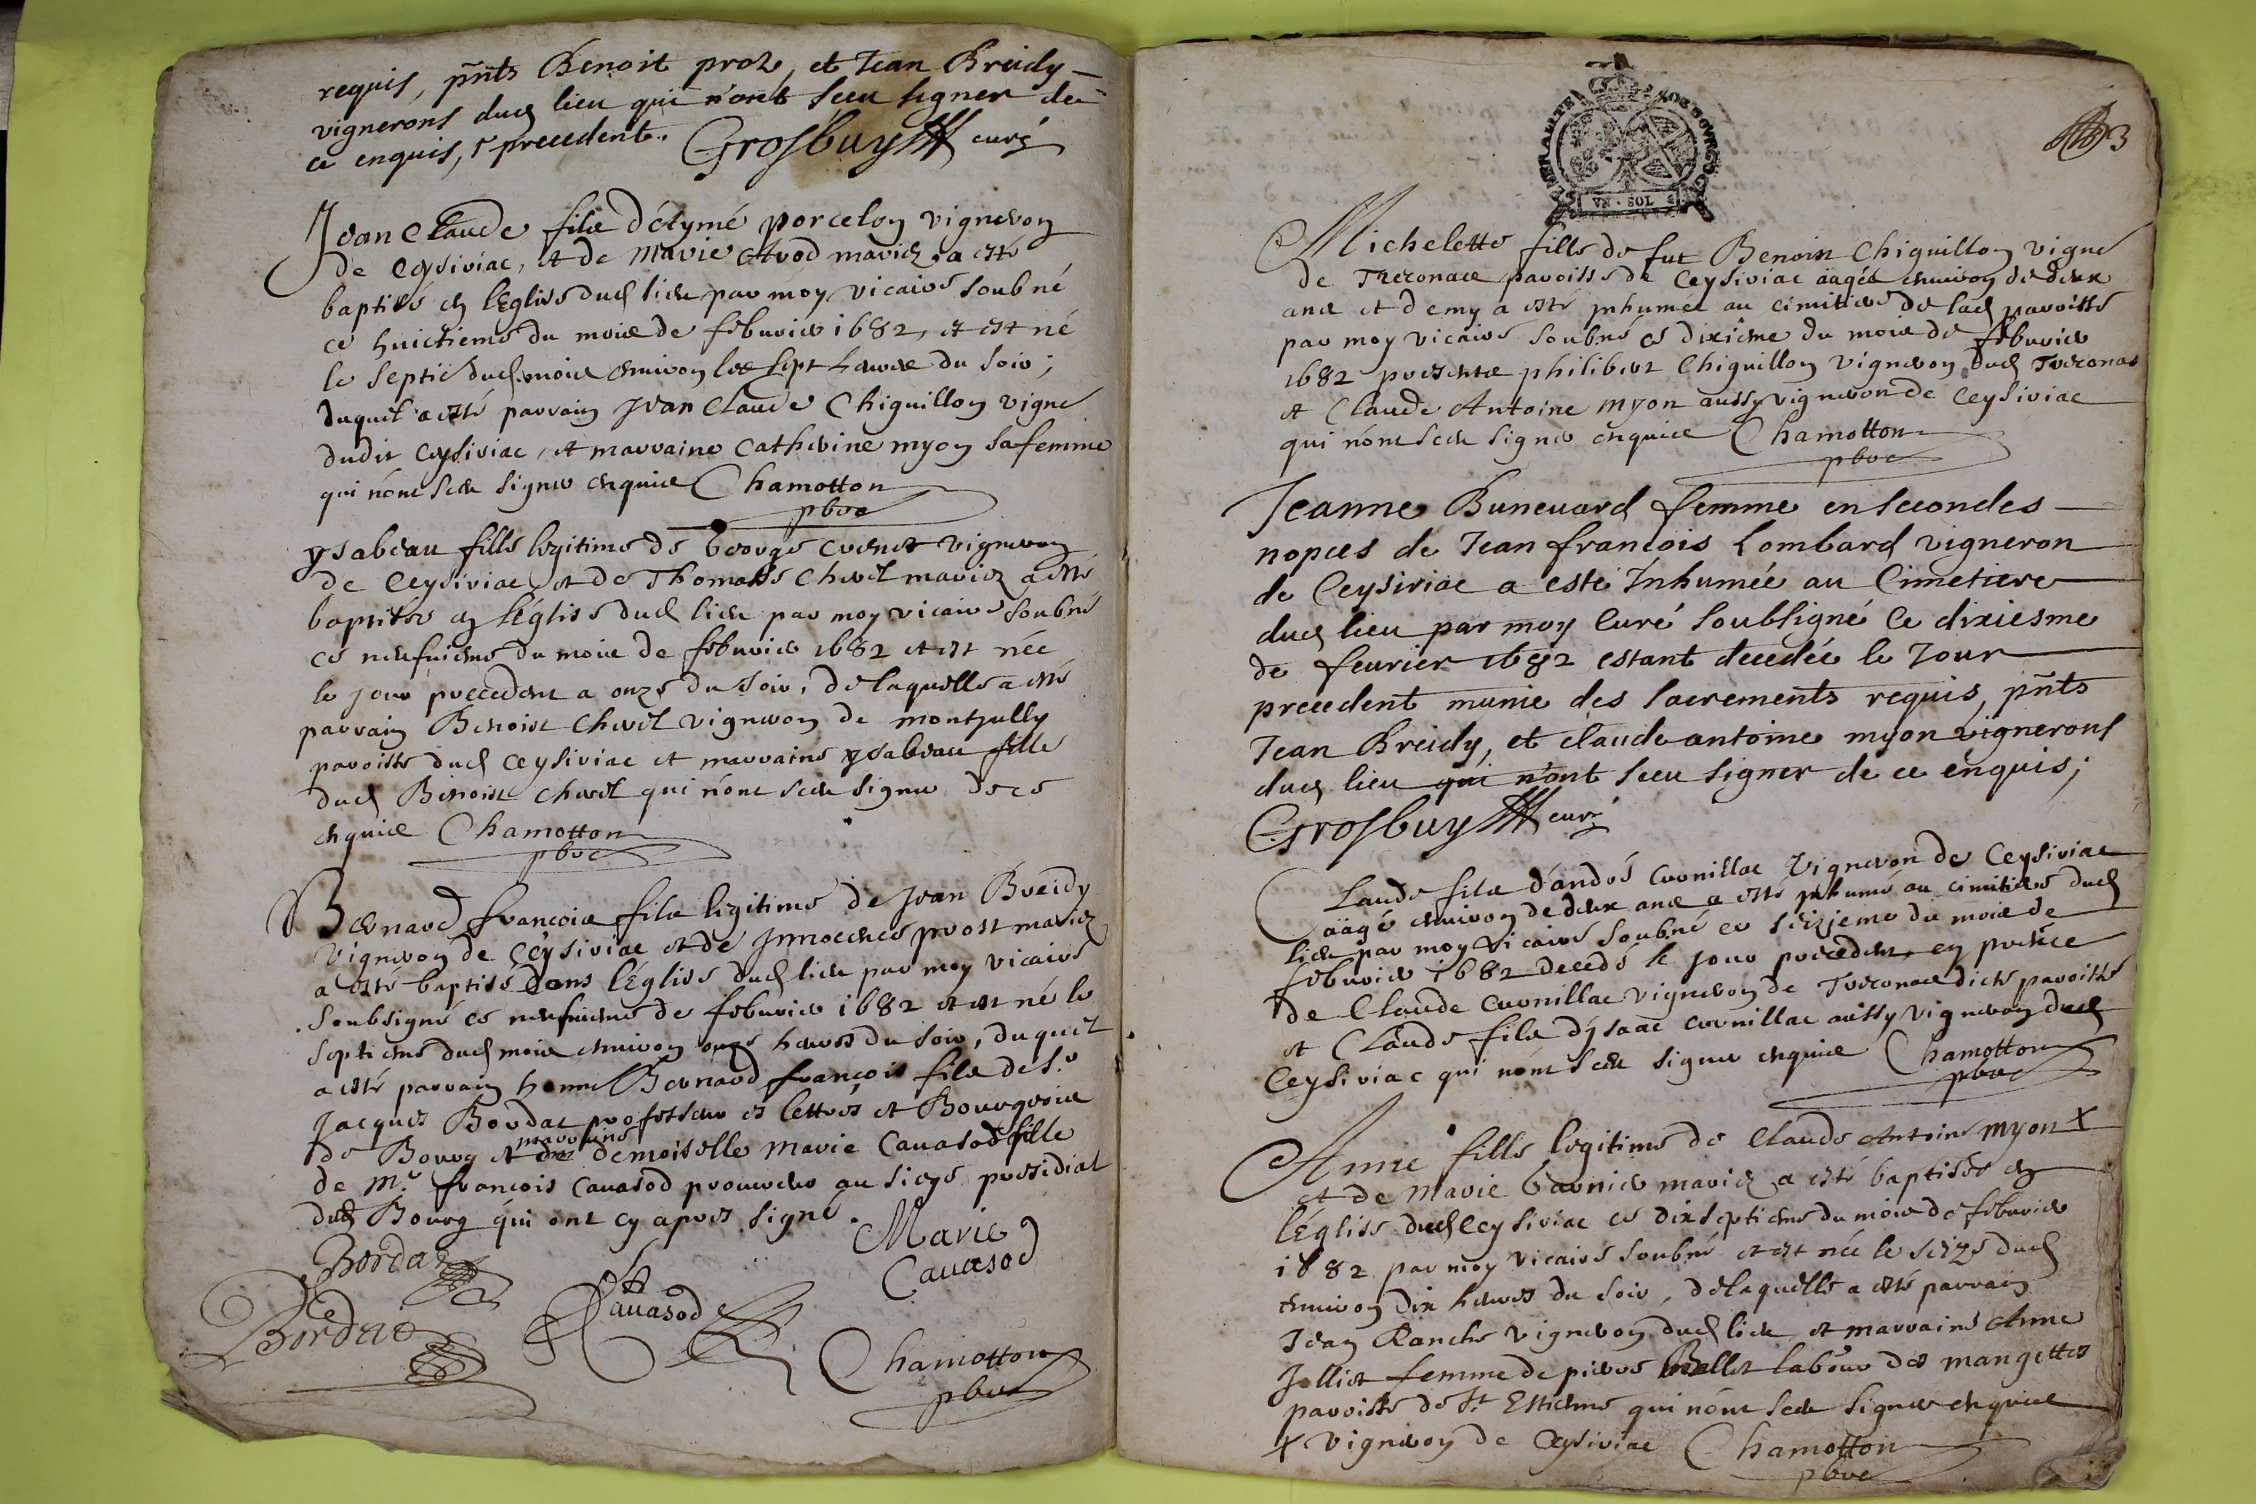 requis, pñts Benoit proz, et Jean Breidy
vignerons dud lieu qui n'ont sceu signer de
ce enquis, precedent. Grosbuy curé
Jean Claude filz d'étymé porcelon vigneron
de Ceysiriac, et de Marie Avod mariez a esté
baptisé en l'Eglise dud lieu par moy vicaire soubné
ce huictieme du mois de febvrier 1682, et est né
le septie dud mois environ les sept heures du soir ;
duquel a esté parrain Jean Claude Chiguillon vigne
dudit Ceysiriac, et marraine Catherine myon sa femme
qui n'ont sceu signer enquis Chamotton
pbre
ysabeau fille legitime de George vigneron
de Ceysiriac et de Thomasse Chevil mariez a esté
baptisée en l'Eglise dud lieu par moy vicaire soubné
ce neufvieme du mois de febvrier 1682 et est née
le jour precedent a onze du soir, de laquelle a esté
parrain Benoist Chevil vigneron de montjully
paroisse dud Ceysiriac et marraine ysabeau fille
dud Benoist Chevil qui n'ont sceu signer de ce
enquis Chamotton
pbre
Bernard françois filz legitime de Jean Breidy
vigneron de Ceysiriac et de Innocence prost mariez
a esté baptisé dans l'Eglise dud lieu par moy vicaire
soubsigné ce neufvieme de febvrier 1682 et est né le
septieme dud mois environ onze heures du soir, duquel
a esté parrain honne Bernard françois filz de Sr
Jacques Bordat professeur es lettres et Bourgeois
de Bourg et marraine demoiselle Marie Cavasod fille
de Mr françois Cavasod procureur au siege presidial
dud Bourg qui ont cy apres signé.
Bordat
Marie
Cavasod
Cavasod
Bordat
Chamotton
pbre
VN · SOL
3
Michelette fille de fut Benoist Chiguillon vigne
de Treconas paroisse de Ceysiriac aagée environ de deux
ans et demy a esté inhumée au cimitiere de lad paroisse
par moy vicaire soubné ce dixieme du mois de febvrier
1682 presents philibert Chiguillon vigneron dud Treconas
et Claude Antoine myon aussy vigneron de Ceysiriac
qui n'ont sceu signer enquis Chamotton
pbre
Jeanne Bunevard femme en secondes
nopces de Jean françois Lombard vigneron
de Ceysiriac a esté Inhumée au Cimetiere
dud lieu par moy Curé soubsigné Ce dixiesme
de fevrier 1682 estant decedée le Jour
precedent munie des sacrements requis, pñts
Jean Breidy, et claude antoine myon vignerons
dud lieu qui n'ont sceu signer de ce enquis ;
Grosbuy curé
Claude filz d'andré Cornillac Vigneron de Ceysiriac
aagé environ de deux ans a esté inhumé au cimitiere dud
lieu par moy vicaire soubné ce seizieme du mois de
febvrier 1682 decedé le jour precedent, en presence
de Claude Cornillac vigneron de Treconas dicte paroisse
et Claude filz d'ysaac Cornillac aussy vigneron dud
Ceysiriac qui n'ont sceu signer enquis Chamotton
pbre
Anne fille legitime de Claude Antoine myon X
et de Marie Garnier mariez a esté baptisée en
l'Eglise dud Ceysiriac ce dix septieme du mois de febvrier
1682 par moy vicaire soubné et est née le seize dud
environ dix heures du soir, de laquelle a esté parrain
Jean Ranche vigneron dud lieu et marraine Anne
Jolliet femme de pierre labour des mangettes
paroisse de St Estienne qui n'ont sceu signer enquis
X vigneron de Ceysiriac Chamotton
pbre